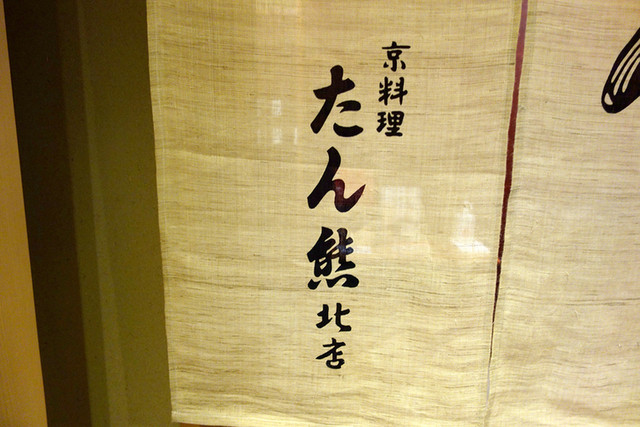 京料理
たん熊北店